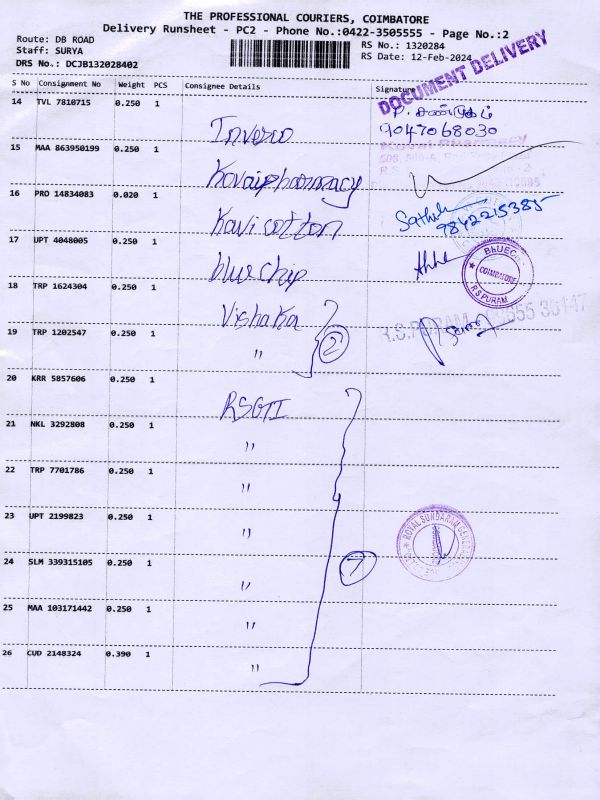 THE PROFESSIONAL COURIERS, COIMBATORE
Delivery Runsheet - PC2 - Phone No.:0422-3505555 - Page No.:2
Route: DB ROAD
Staff: SURYA
DRS No.: DCJB132028402
RS No.: 1320284
RS Date: 12-Feb-2024
DOCUMENT DELIVERY
S No Consignment No Weight PCS Consignee Details Signature
14 TVL 7810715 0.250 1 Invesco
P. சண்முகம்
9047068030
15 MAA 863950199 0.250 1 Kovai pharmacy
16 PRO 14834083 0.020 1 Kavi cotton
9842215385
17 UPT 4048005 0.250 1 blue chip
COIMBATORE
R S PURAM
18 TRP 1624304 0.250 1 Vishaka
R.S.PURAM
19 TRP 1202547 0.250 1 " 2
20 KRR 5857606 0.250 1 RSGI
21 NKL 3292808 0.250 1 "
22 TRP 7701786 0.250 1 "
23 UPT 2199823 0.250 1 "
ROYAL SUNDARAM GENERAL
24 SLM 339315105 0.250 1 " 7
25 MAA 103171442 0.250 1 "
26 CUD 2148324 0.390 1 "